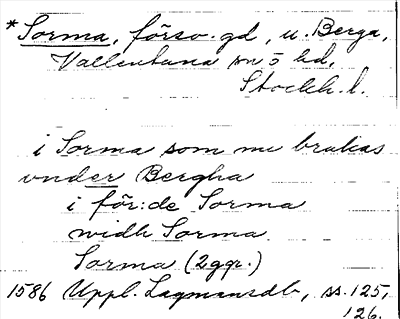 *Sorma, försv. gd, u. Berga,
Vallentuna sn o hd,
Stockh. l.
i Sorma som nu brukas
under Bergha
i för:de Sorma
widh Sorma
Sorma (2 ggr.)
1586 Uppl. Lagmansdb, ss. 125,
126.